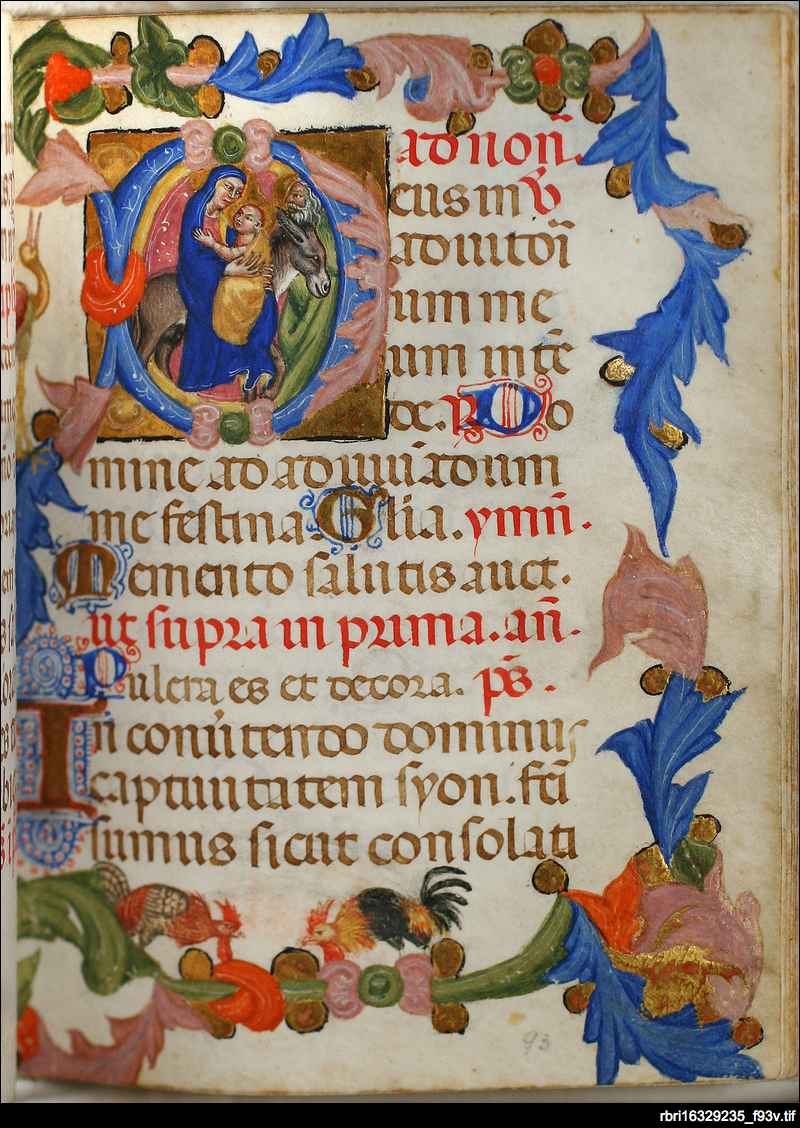 ad noñ.
eus in
adiutoı̄
um me
um intē
de. R Do
mine ad adiuuādum
me festina. Glia. ymñ.
Memento salutis auct.
ut supra in prima. añ.
Pulcra es et decora. ps̄.
In conūtendo dominus
captiuitatem syon. fcı̄
sumus sicut consolati
93
rbri16329235_f93v.tif